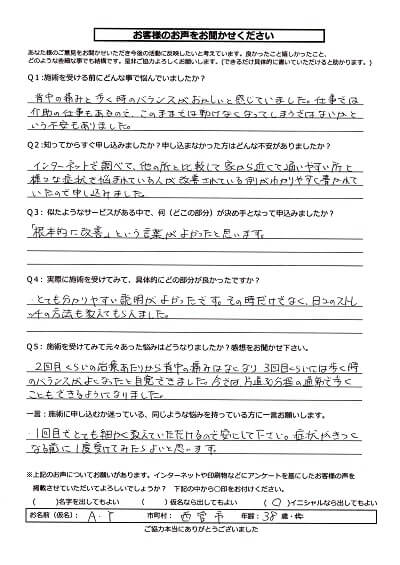 お客様のお声をお聞かせください
あなた様のご意見をお聞かせいただき今後の活動に反映したいと考えています。良かったこと嬉しかったこと、
どのような些細な事でも結構です。是非ご協力よろしくお願いします。(できるだけ具体的に書いていただけると助かります。)
Q1:施術を受ける前にどんな事で悩んでいましたか?
背中の痛みと歩く時のバランスがおかしいと感じていました。仕事では
介助の仕事もあるので、このままでは動けなくなってしまうではないかと
いう不安もありました。
Q2:知ってからすぐ申込みましたか?申し込まなかった方はどんな不安がありましたか?
インターネットで調べて、他の所と比較して家から近くて通いやすい所と
様々な症状で悩まれている人が改善されている例がわかりやすく書かれて
いたので申し込みました。
Q3:似たようなサービスがある中で、何(どこの部分)が決め手となって申込みましたか?
「根本的に改善」という言葉がよかったと思います。
Q4:実際に施術を受けてみて、具体的にどの部分が良かったですか?
とても分かりやすい説明がよかったです。その時だけでなく、日々のストレ
ッチの方法も教えてもらえました。
Q5:施術を受けてみて元々あった悩みはどうなりましたか?感想をお聞かせ下さい。
2回目くらいの治療あたりから背中の痛みはなくなり、3回目くらいには歩く時
のバランスがよくなったと自覚できました。今では、片道30分程の通勤で歩く
こともできるようになりました。
一言:施術に申し込むか迷っている、同じような悩みを持っている方に一言お願いします。
1回目でとても細かく教えていただけるので安心して下さい。症状がきつく
なる前に1度受けてみたらよいと思います。
※上記のお声についてお願いがあります。インターネットや印刷物などにアンケートを基にしたお客様の声を
掲載させていただいてよろしいでしょうか? 下記の中から○印をお付けください。
( )名字を出してもよい ( )仮名なら出してもよい (○)イニシャルなら出してもよい
お名前(仮名): A・T 市町村: 西宮市 年齢: 38歳・
ご協力本当にありがとうございました